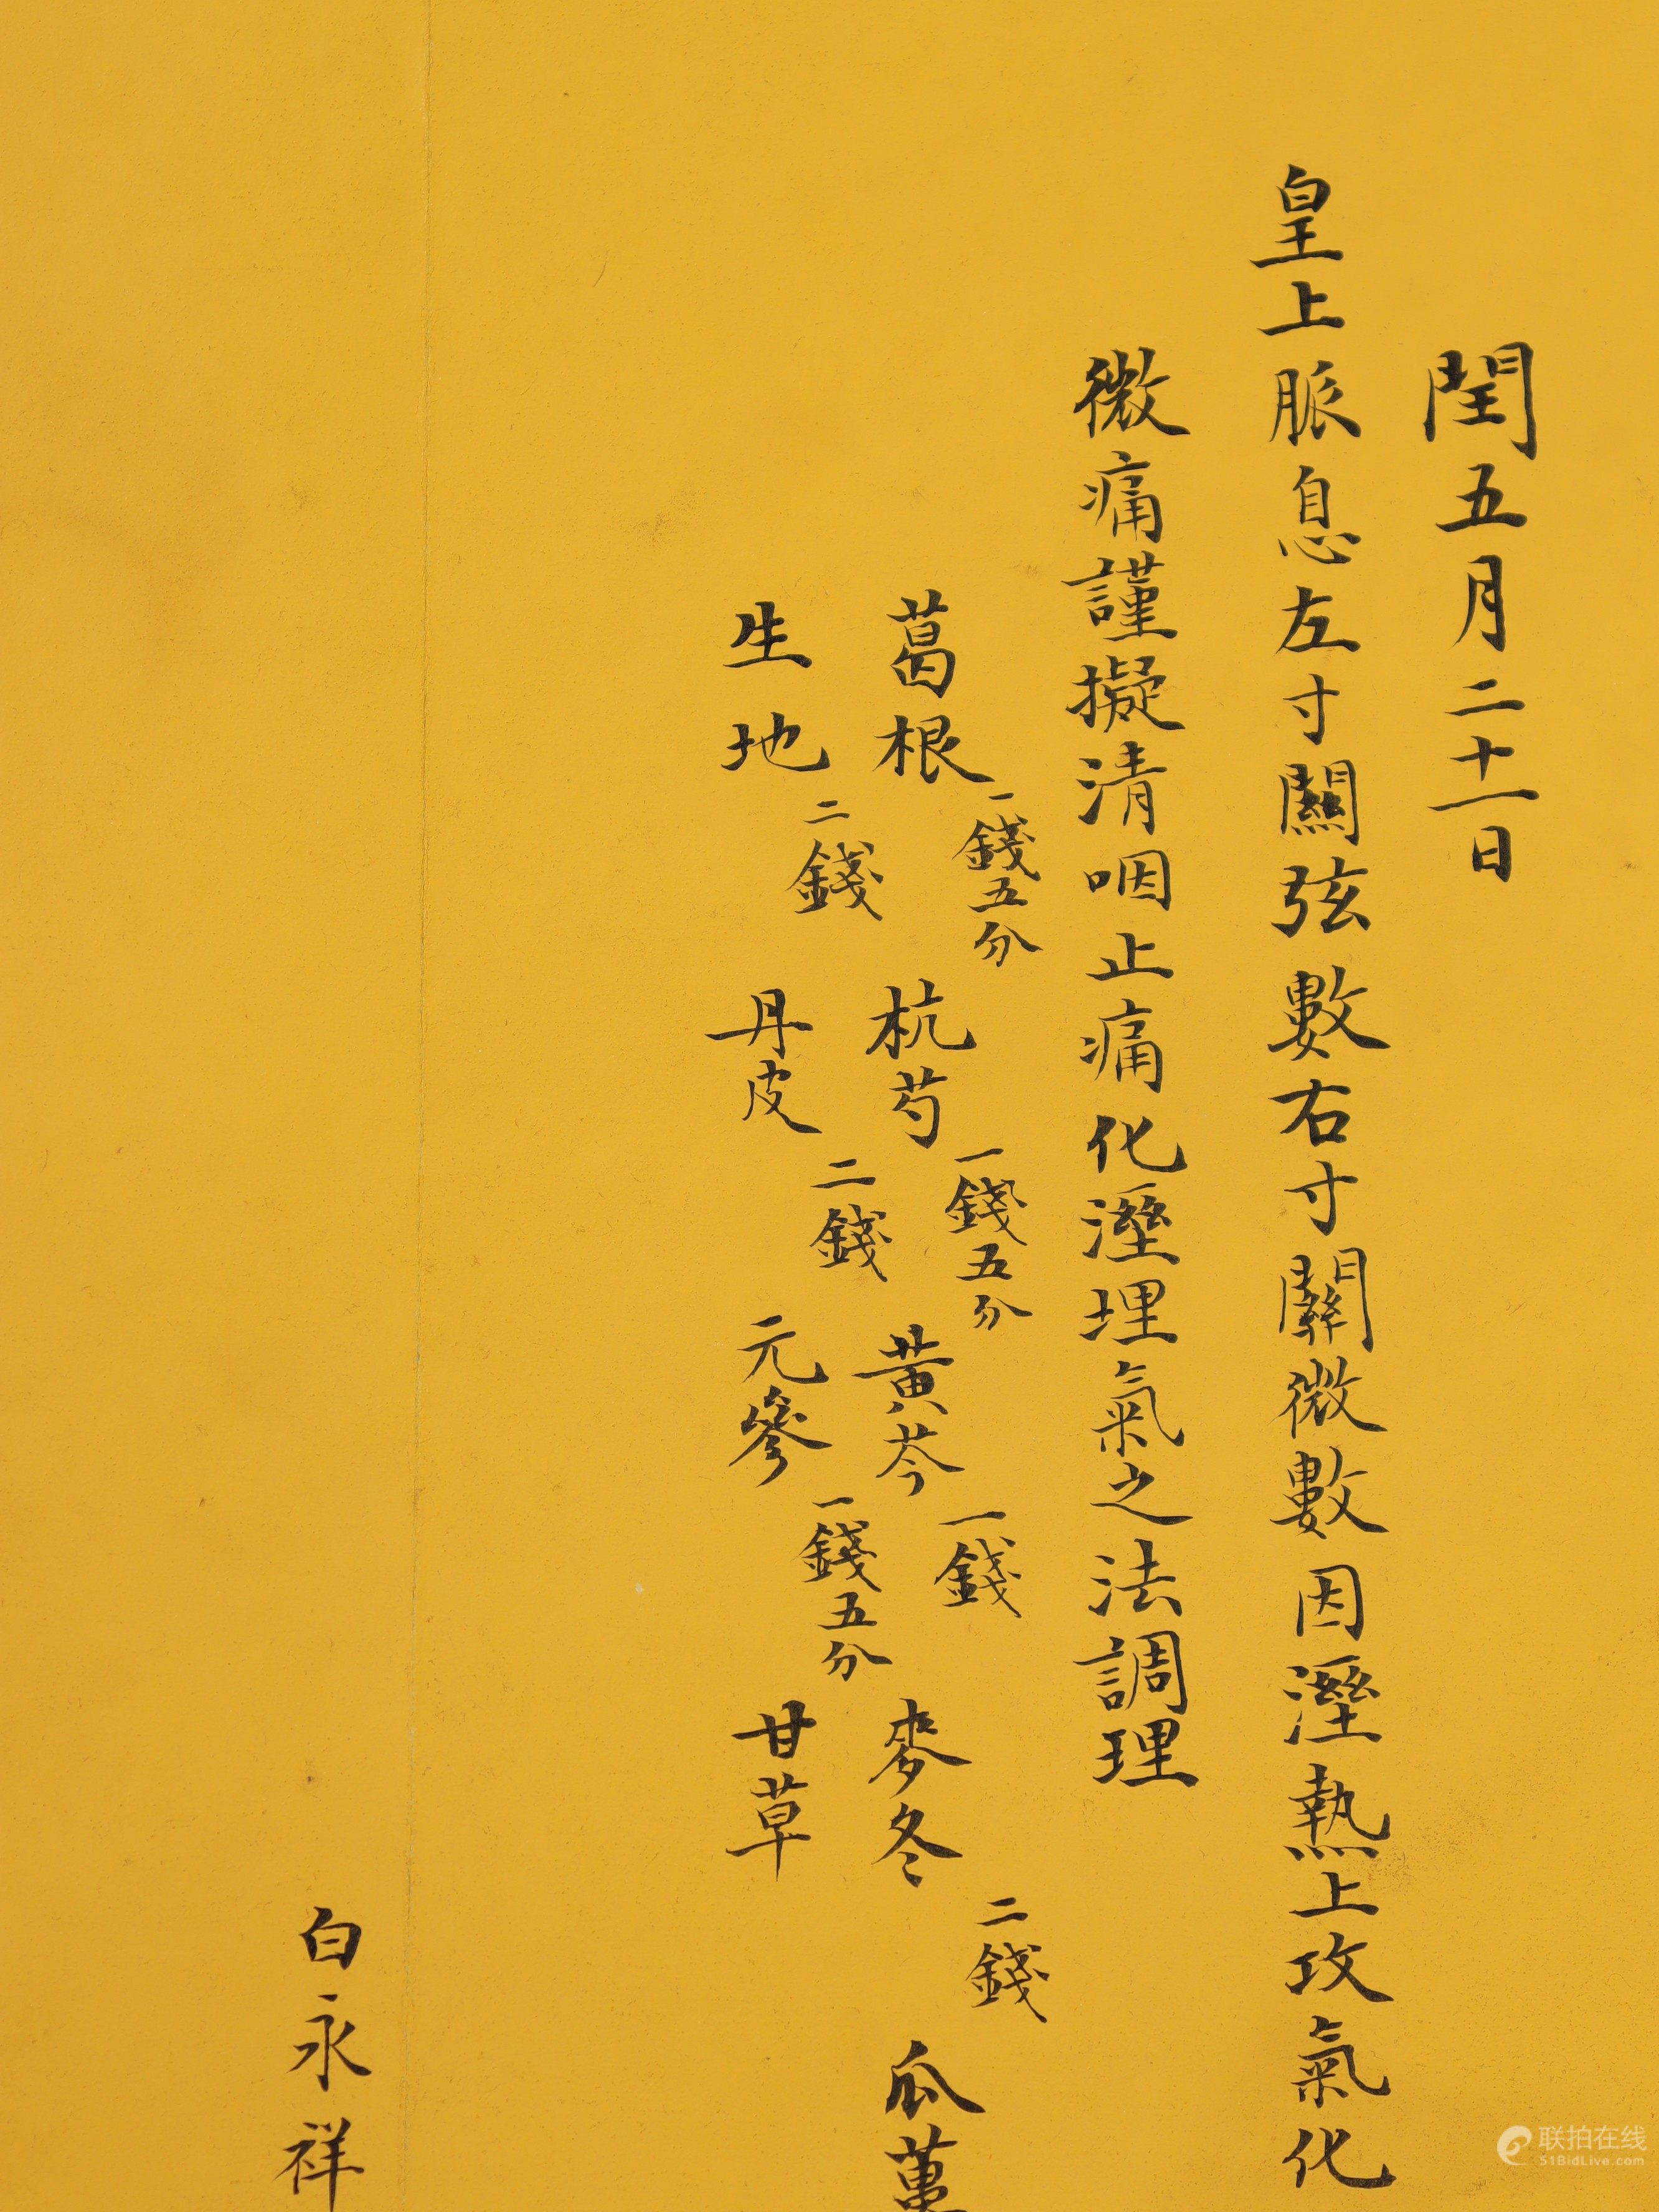 閏五月二十一日
皇上脈息左寸關弦數右寸關微數因溼熱上攻氣化
微痛謹擬清咽止痛化溼理氣之法調理
葛根一錢五分 杭芍一錢五分 黃芩一錢 麥冬二錢 瓜蔞
生地二錢 丹皮二錢 元參一錢五分 甘草
白永祥
联拍在线
51BidLive.com